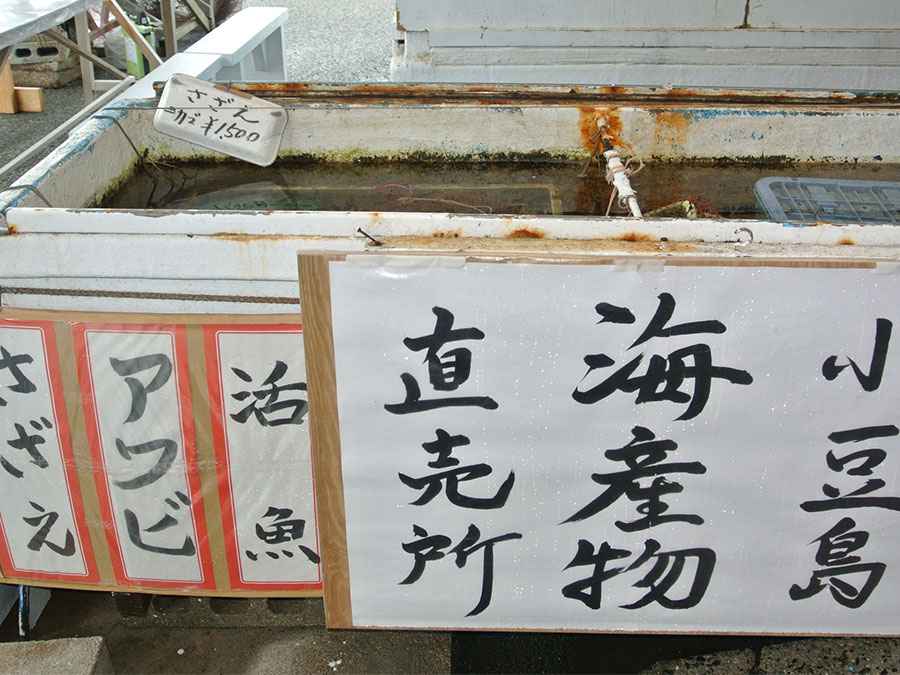 さざえ
¥1,500
小豆島
海産物
直売所
活魚
アワビ
さざえ